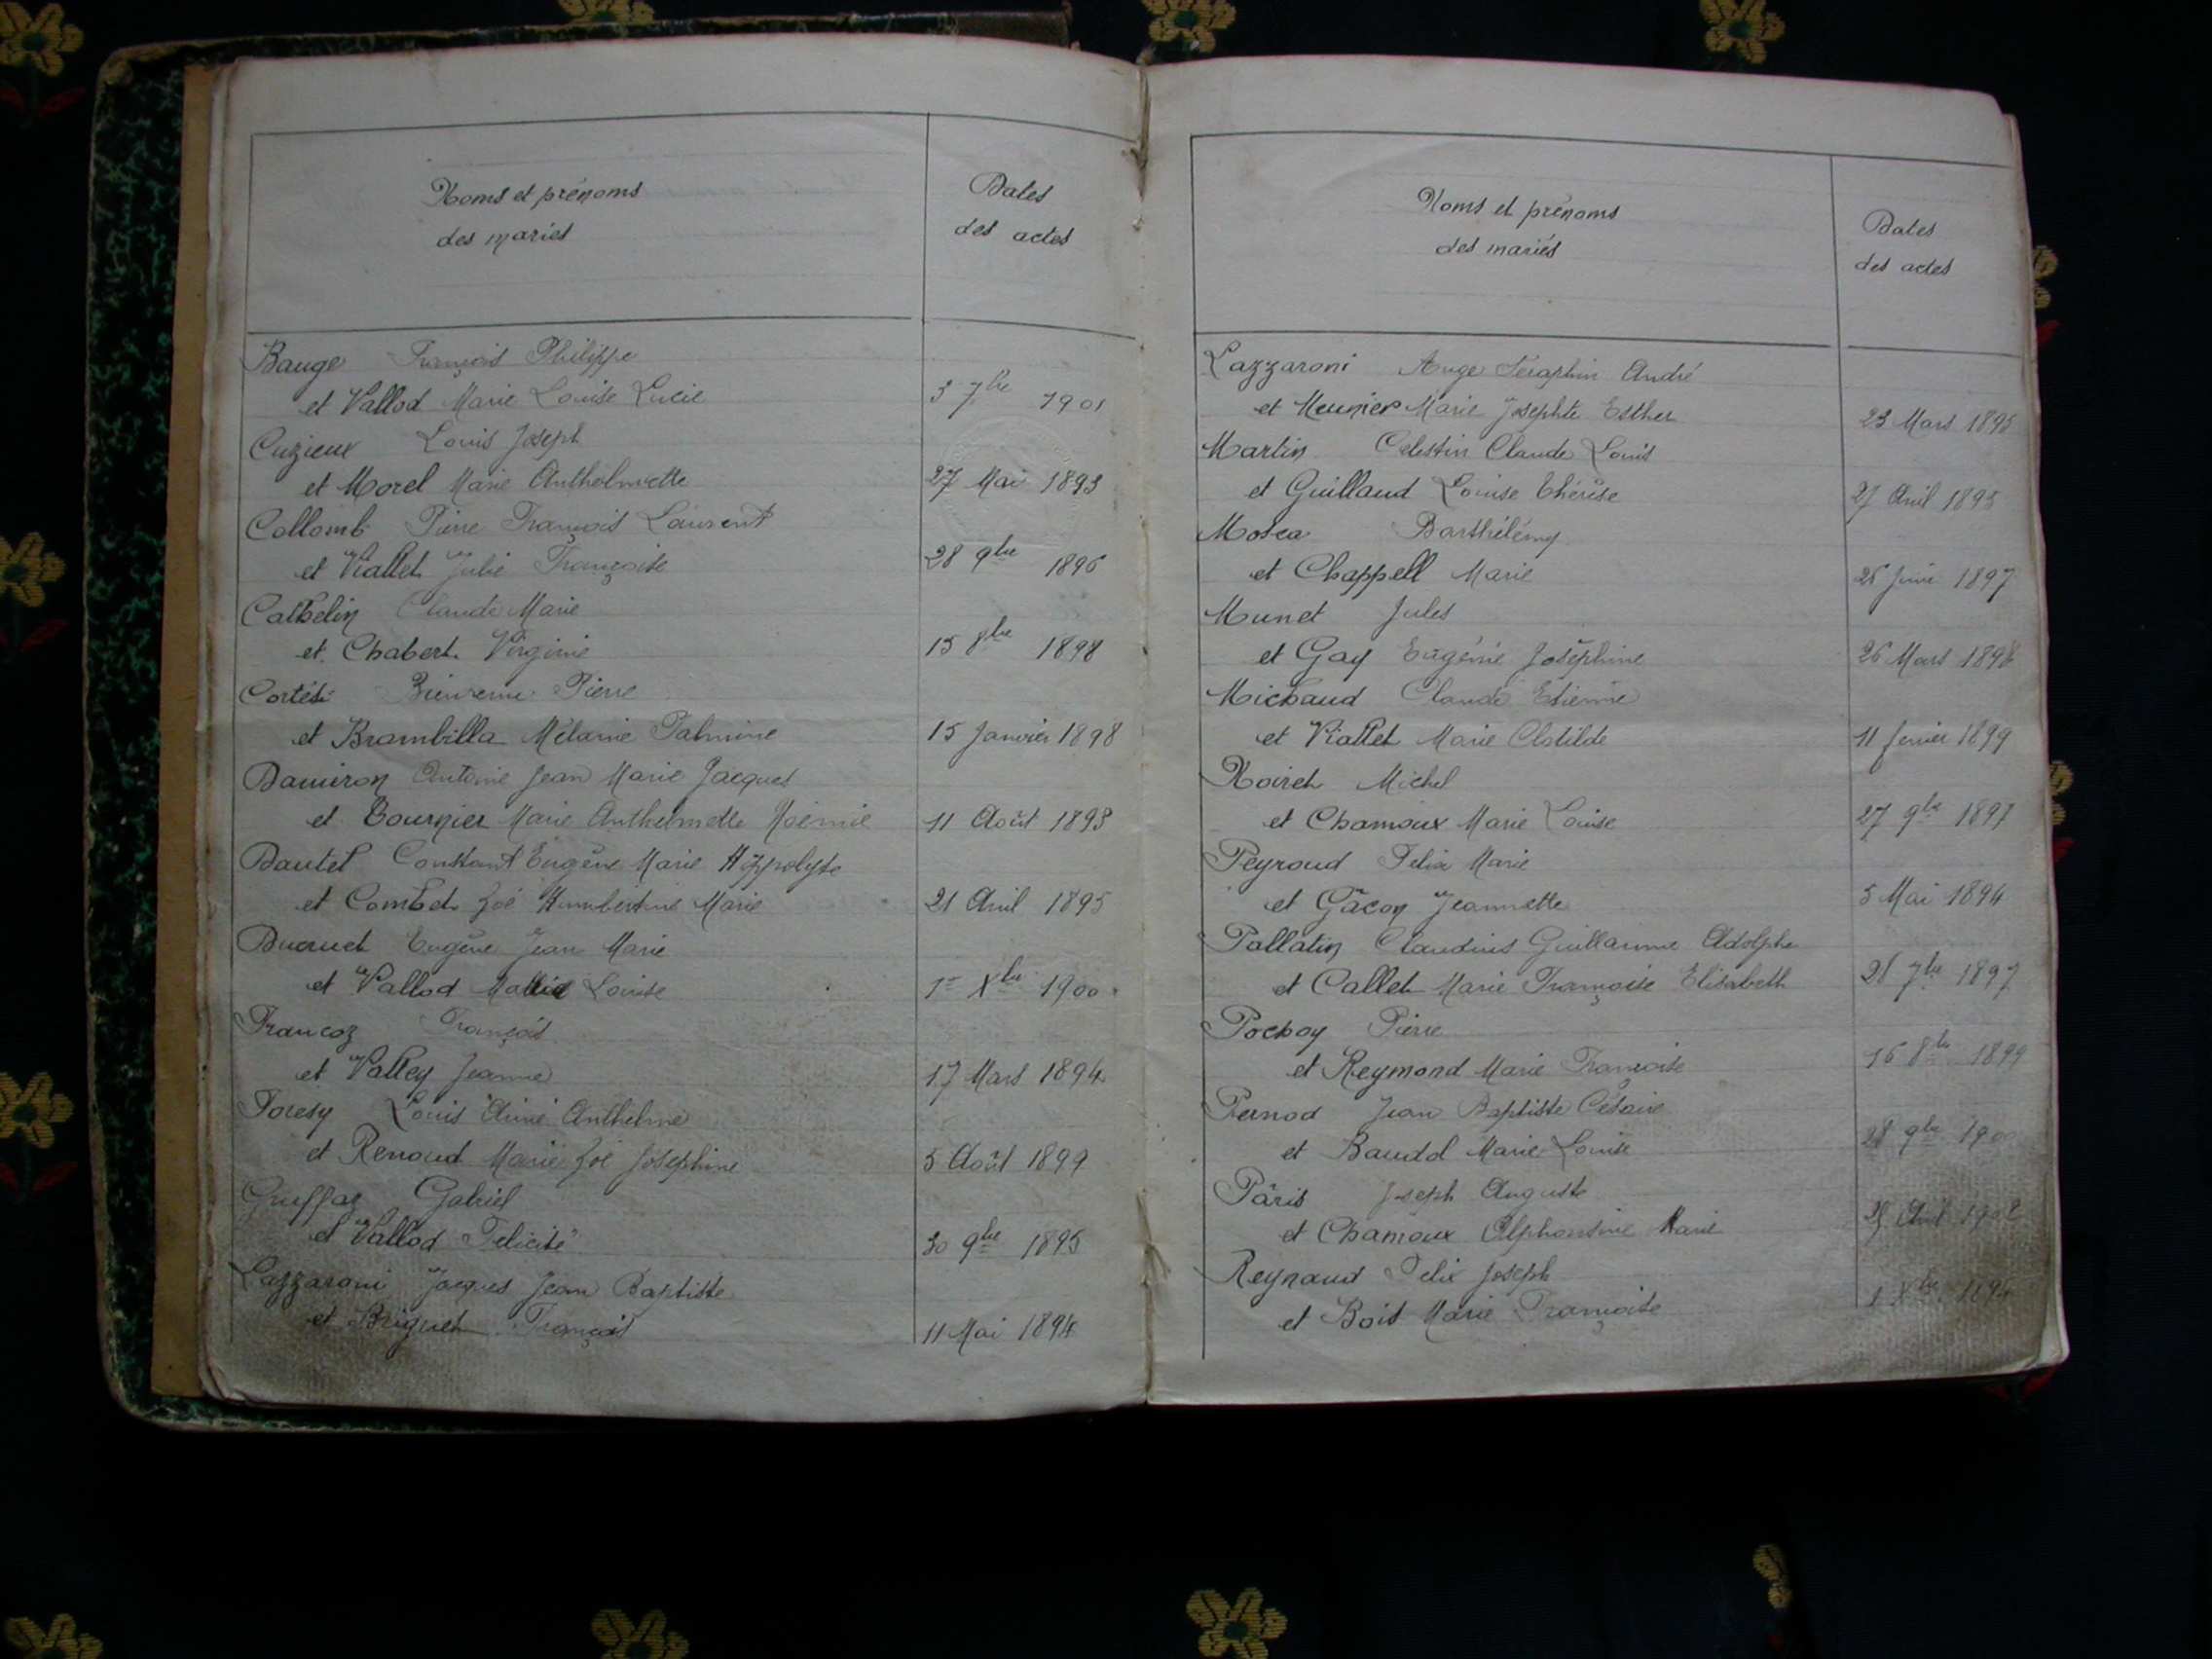 Noms et prénoms
des mariés
Dates
des actes
Bauge François Philippe
et Vallod Marie Louise Lucie 3 7bre 1901
Cuzieux Louis Joseph
et Morel Marie Anthelmette 27 Mai 1893
Collomb Pierre François Laurent
et Viallet Julie Françoise 28 9bre 1896
Cathelin Claude Marie
et Chabert Virginie 15 8bre 1898
Cortési Bienvenu Pierre
et Brambilla Mélanie Palmine 15 Janvier 1898
Damiron Antoine Jean Marie Jacques
et Bournier Marie Anthelmette Noémie 11 Août 1893
Dautel Constant Eugène Marie Hippolyte
et Combet Zoé Humbertine Marie 21 Avril 1895
Ducruet Eugène Jean Marie
et Vallod Louise 1er Xbre 1900
Francoz François
et Valley Jeanne 17 Mars 1894
Foresy Louis Aimé Anthelme
et Renaud Marie Zoé Joséphine 5 Août 1899
Gruffaz Gabriel
et Vallod Félicité 30 9bre 1895
Lazzaroni Jacques Jean Baptiste
et Briguet 11 Mai 1894
Noms et prénoms
des mariés
Dates
des actes
Lazzaroni Ange Séraphin André
et Meunier Marie Josephte Esther 23 Mars 1895
Martin Célestin Claude Louis
et Guillaud Louise Thérèse 27 Avril 1895
Mosca Barthélémy
et Chappell Marie 26 Juin 1897
Munet Jules
et Gay Eugénie Joséphine 26 Mars 1898
Michaud Claude Etienne
et Viallet Marie Clotilde 11 février 1899
Noiret Michel
et Chamoux Marie Louise 27 9bre 1897
Peyroud Felix Marie
et Gâcon Jeannette 5 Mai 1894
Pallatin Claudius Guillaume Adolphe
et Callet Marie Françoise Elisabeth 28 7bre 1897
Pochoy Pierre
et Reymond Marie Françoise 16 8bre 1899
Pernod Jean Baptiste Césaire
et Marie Louise 28 9bre 1900
Pâris Joseph Auguste
et Chamoux Alphonsine Marie Avril 1902
Reynaud Felix Joseph
et Bois Marie Françoise 1 Xbre 1894